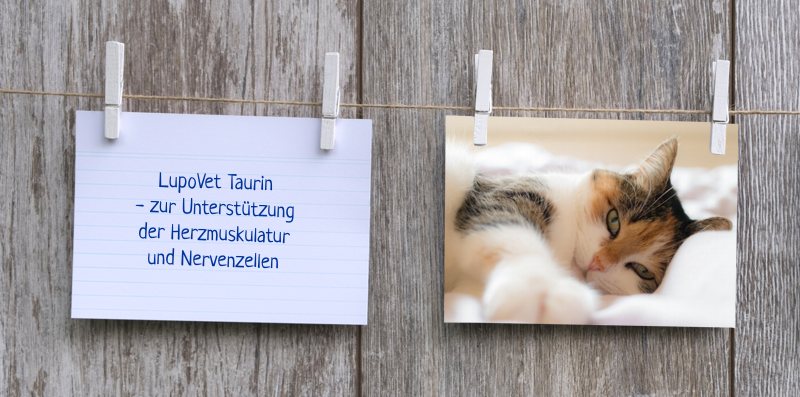 LupoVet Taurin
- zur Unterstützung
der Herzmuskulatur
und Nervenzellen